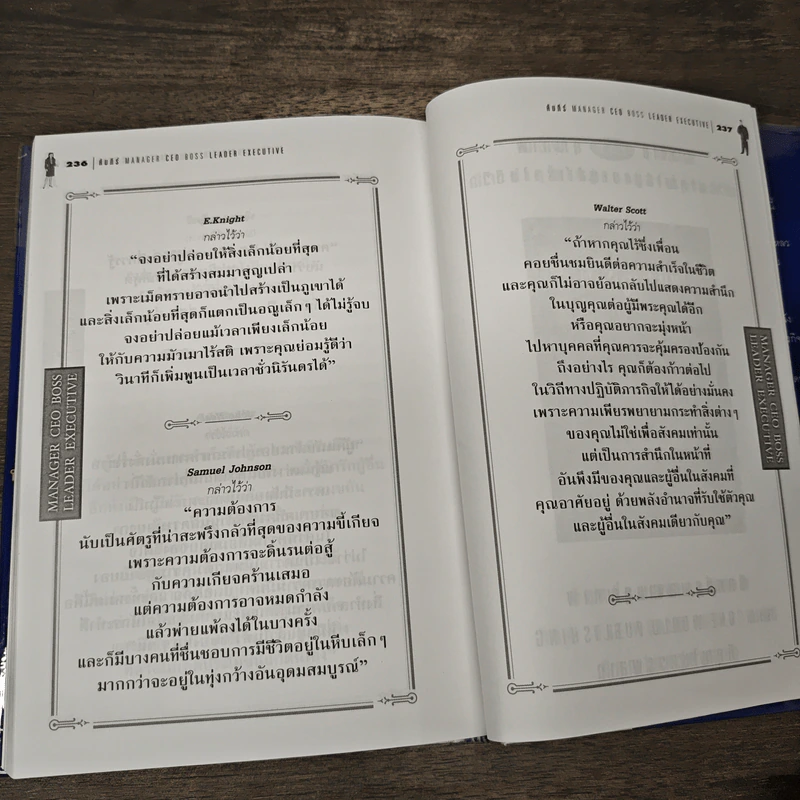 236 | คัมภีร์ MANAGER CEO BOSS LEADER EXECUTIVE
E.Knight
กล่าวไว้ว่า
“จงอย่าปล่อยให้สิ่งเล็กน้อยที่สุด
ที่ได้สร้างสมมาสูญเปล่า
เพราะเม็ดทรายอาจนำไปสร้างเป็นภูเขาได้
และสิ่งเล็กน้อยที่สุดก็แตกเป็นอณูเล็กๆ ได้ไม่รู้จบ
จงอย่าปล่อยแม้เวลาเพียงเล็กน้อย
ให้กับความมัวเมาไร้สติ เพราะคุณย่อมรู้ดีว่า
วินาทีก็เพิ่มพูนเป็นเวลาชั่วนิรันดรได้”
MANAGER CEO BOSS
LEADER EXECUTIVE
Samuel Johnson
กล่าวไว้ว่า
“ความต้องการ
นับเป็นศัตรูที่น่าสะพรึงกลัวที่สุดของความขี้เกียจ
เพราะความต้องการจะดิ้นรนต่อสู้
กับความเกียจคร้านเสมอ
แต่ความต้องการอาจหมดกำลัง
แล้วพ่ายแพ้ลงได้ในบางครั้ง
และก็มีบางคนที่ชื่นชอบการมีชีวิตอยู่ในหีบเล็กๆ
มากกว่าจะอยู่ในทุ่งกว้างอันอุดมสมบูรณ์”
คัมภีร์ MANAGER CEO BOSS LEADER EXECUTIVE | 237
Walter Scott
กล่าวไว้ว่า
“ถ้าหากคุณไร้ซึ่งเพื่อน
คอยชื่นชมยินดีต่อความสำเร็จในชีวิต
และคุณก็ไม่อาจย้อนกลับไปแสดงความสำนึก
ในบุญคุณต่อผู้มีพระคุณได้อีก
หรือคุณอยากจะมุ่งหน้า
ไปหาบุคคลที่คุณควรจะคุ้มครองป้องกัน
ถึงอย่างไร คุณก็ต้องก้าวต่อไป
ในวิถีทางปฏิบัติภารกิจให้ได้อย่างมั่นคง
เพราะความเพียรพยายามกระทำสิ่งต่างๆ
ของคุณไม่ใช่เพื่อสังคมเท่านั้น
แต่เป็นการสำนึกในหน้าที่
อันพึงมีของคุณและผู้อื่นในสังคมที่
คุณอาศัยอยู่ ด้วยพลังอำนาจที่รับใช้ตัวคุณ
และผู้อื่นในสังคมเดียวกับคุณ”
MANAGER CEO BOSS
LEADER EXECUTIVE